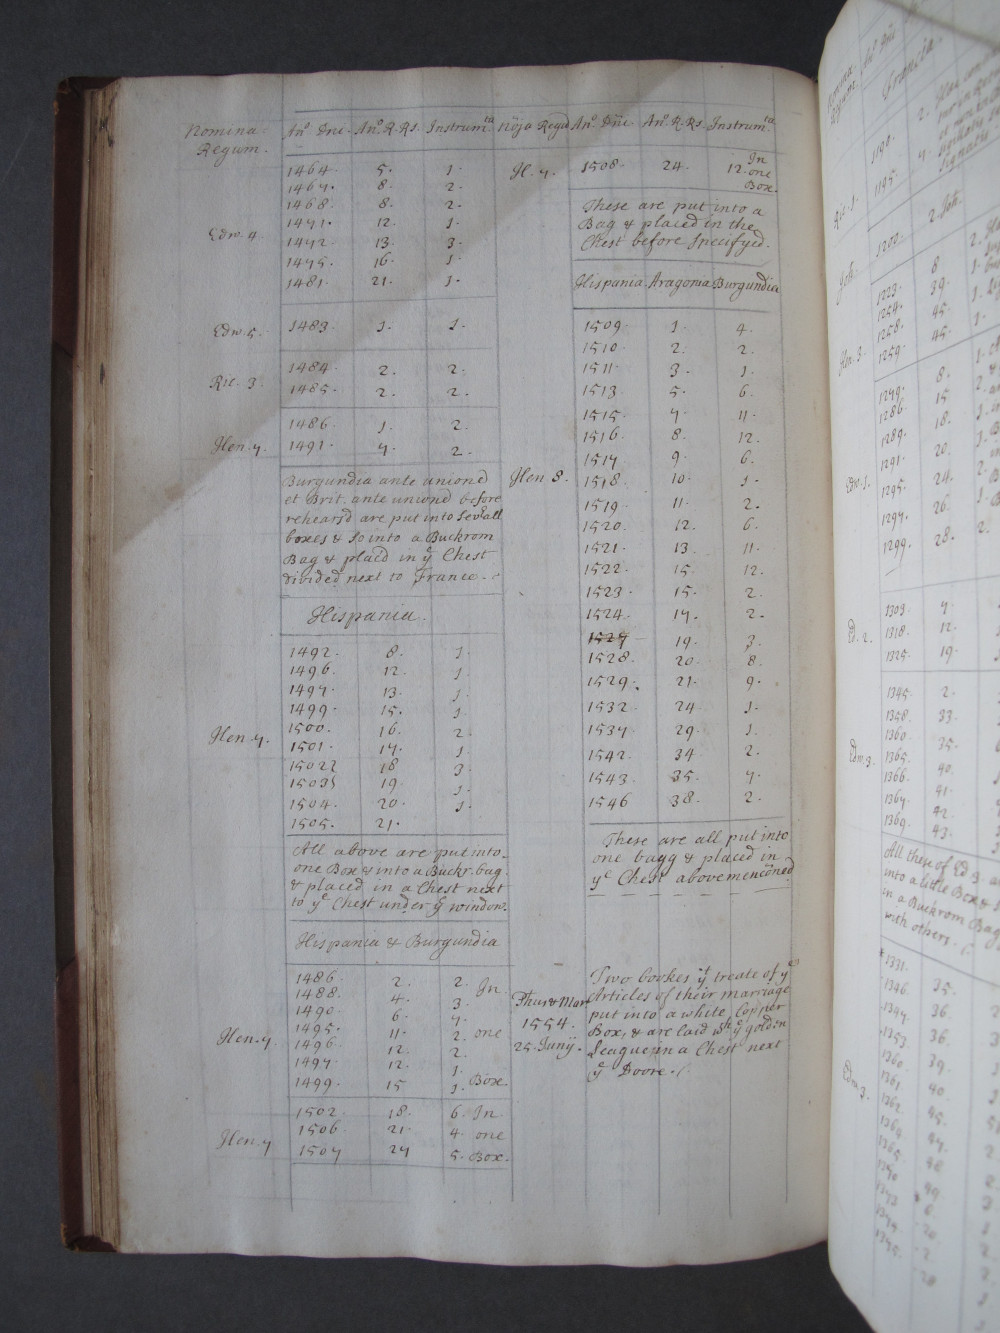 Nomina Regum. An.o Dni. An.o R. Rs. Instrum.ta
Edw. 4. 1464. 5. 1.
1467. 8. 2.
1468. 8. 2.
1471. 12. 1.
1472. 13. 3.
1475. 16. 1.
1481. 21. 1.
Edw. 5. 1483. 1. 1.
Ric. 3. 1484. 2. 2.
1485. 2. 2.
Hen. 7. 1486. 1. 2.
1491. 7. 2.
Burgundia ante unioned
et Brit. ante uniond before
rehears'd are put into sev.all
boxes & so into a Buckrom
Bag & placed in ye Chest
divided next to France.
Hispania.
Hen. 7. 1492. 8. 1.
1496. 12. 1.
1497. 13. 1.
1499. 15. 1.
1500. 16. 2.
1501. 17. 1.
1502 18 3.
1503 19. 1.
1504. 20. 1.
1505. 21.
All above are put into
one Box & into a Buckr. bag.
& placed in a Chest next
to ye Chest under ye window.
Hispania & Burgundia
Hen. 7. 1486. 2. 2. In
1488. 4. 3.
1490. 6. 7.
1495. 11. 2. one
1496. 12. 2.
1497. 12. 1.
1499. 15 1. Box
Hen. 7 1502. 18. 6. In
1506. 21. 4. one
1507 24 5. Box.
Nõia Regũ An.o Dñi. An.o R. Rs. Instrum.ta
H. 7. 1508. 24. 12. In one Box.
These are put into a
Bag & placed in the
Chest before specifyed.
Hispania. Aragonia. Burgundia
1509. 1. 4.
1510. 2. 2.
1511. 3. 1.
1513. 5. 6.
1515. 7. 11.
1516. 8. 12.
1517. 9. 6.
Hen 8. 1518. 10. 1.
1519. 11. 2.
1520. 12. 6.
1521. 13. 11.
1522. 15. 12.
1523. 15. 2.
1524. 17. 2.
1527 19. 3.
1528. 20. 8.
1529. 21. 9.
1532. 24 1.
1537. 29. 1.
1542. 34 2.
1543. 35. 7.
1546 38. 2.
These are all put into
one bagg & placed in
ye Chest abovemencõned
Two bookes yt treate of ye
Articles of their marriage
1554. put into a white Copper
25. Junij. Box, & are laid wth ye golden
Leagues in a Chest next
ye Doore.
Nomina Regum. An.o Dni
Francia.
Ric. 1. 1190. 2.
1195.
Joh. 1200. 2. Joh.
Hen. 3. 1223. 8
1254. 39.
1258. 45.
1259. 45.
Edw. 1. 1279. 8.
1286. 15
1289. 18.
1291. 20.
1295. 24.
1297. 26.
1299. 28. 2.
Ed. 2. 1303. 7
1318. 12.
1325. 19.
Edw. 3. 1345. 2.
1358. 33.
1360. 35.
1365.
1366. 40.
1367. 41.
1369. 42.
43.
All these of Ed 3.
into a little Box &
in a Buckrom Bag
with others.
Edw. 3. 1331.
1346. 35.
1347. 36.
1353 36.
1360. 39.
1361 40.
1362 45.